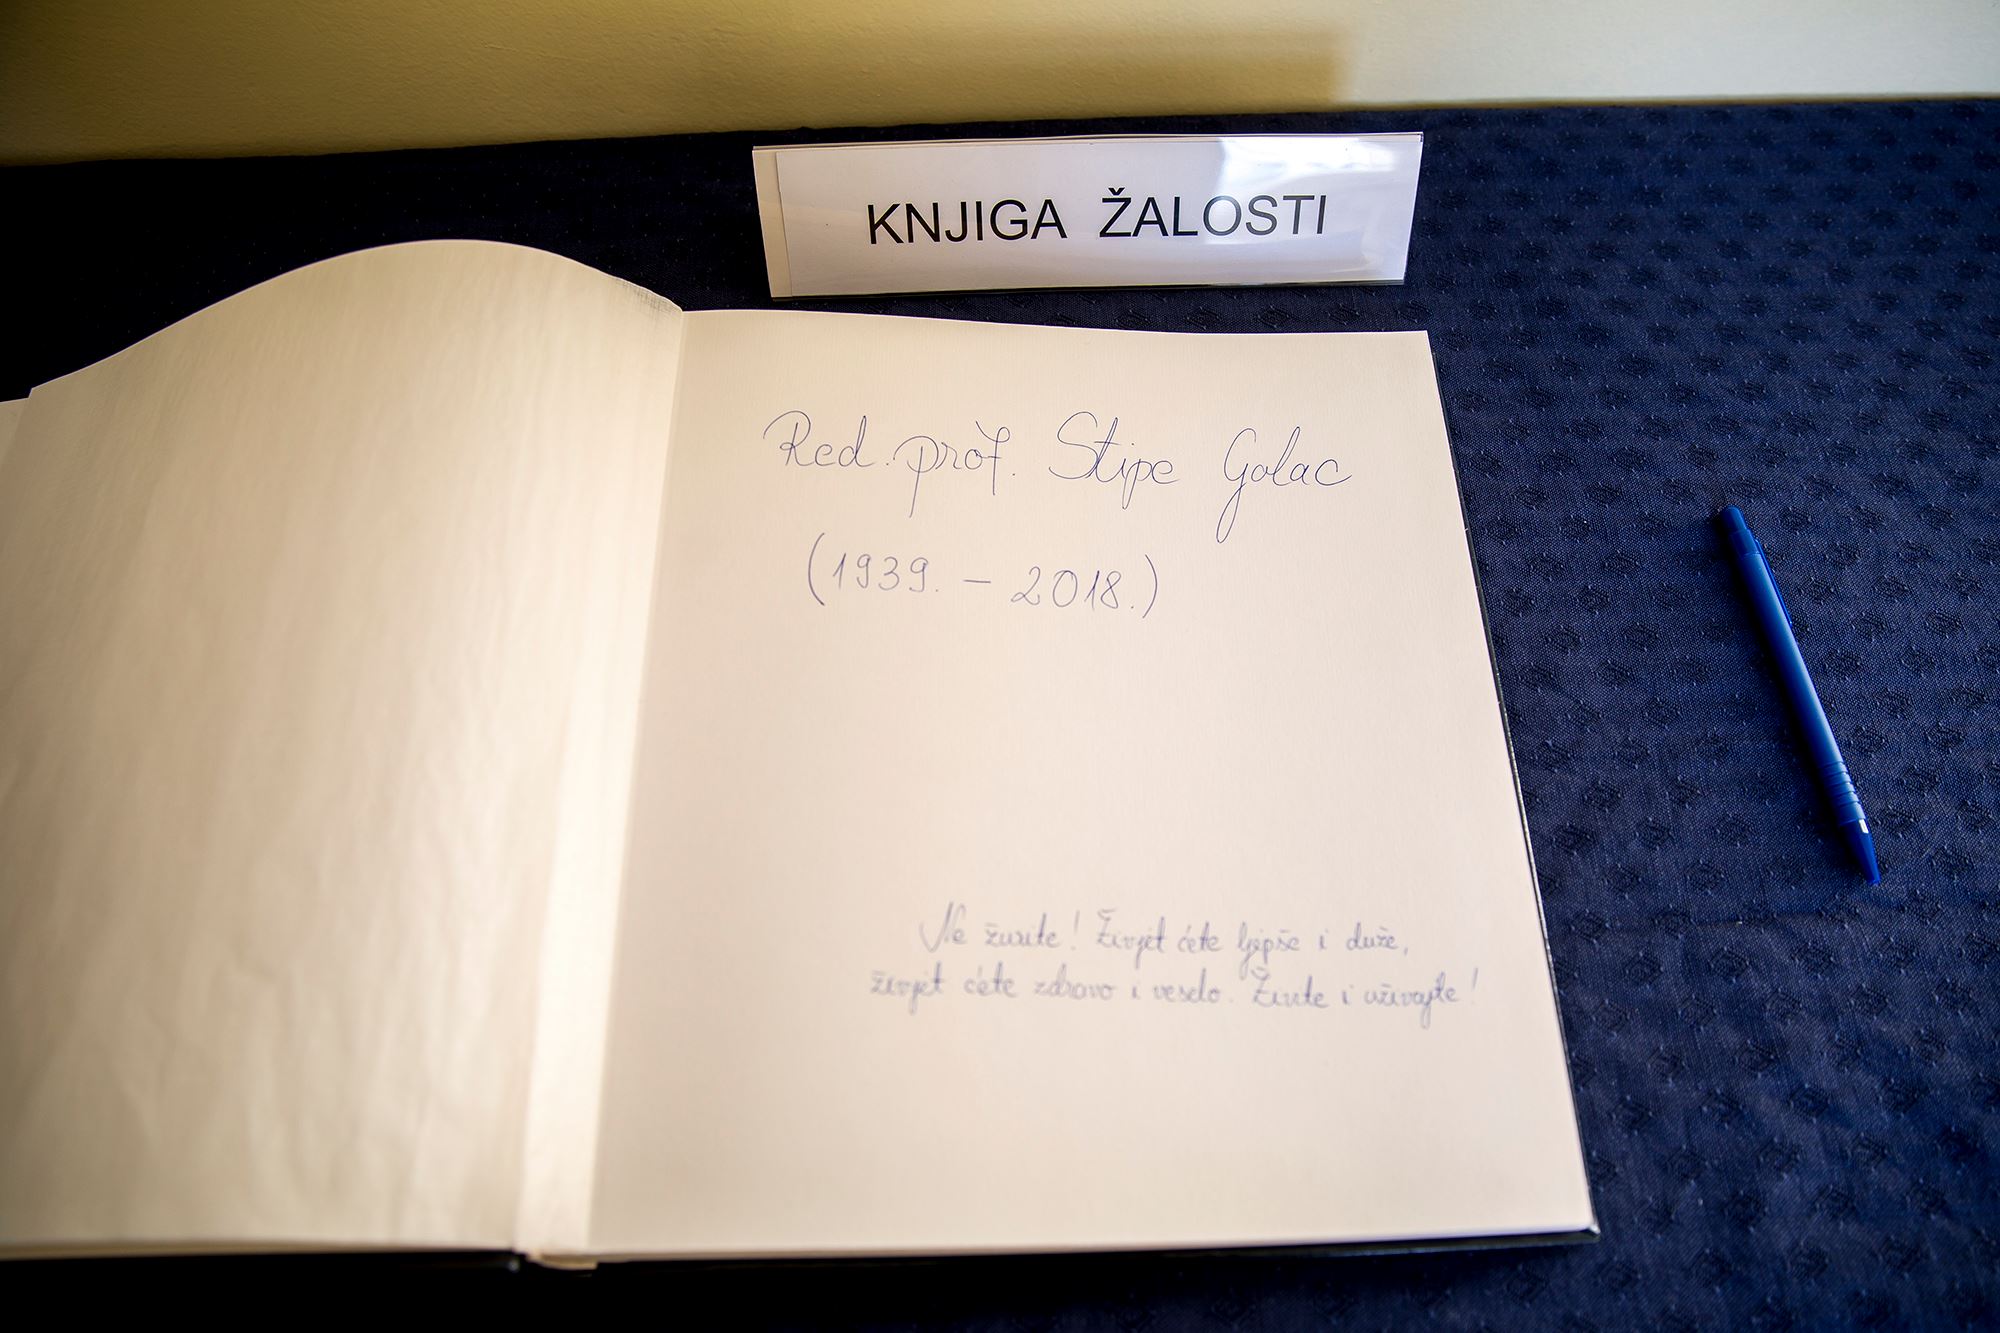 KNJIGA ŽALOSTI
Red. prof. Stipe Golac
(1939. – 2018.)
Ne žurite! Živjet ćete ljepše i duže,
živjet ćete zdravo i veselo. Živite i uživajte!